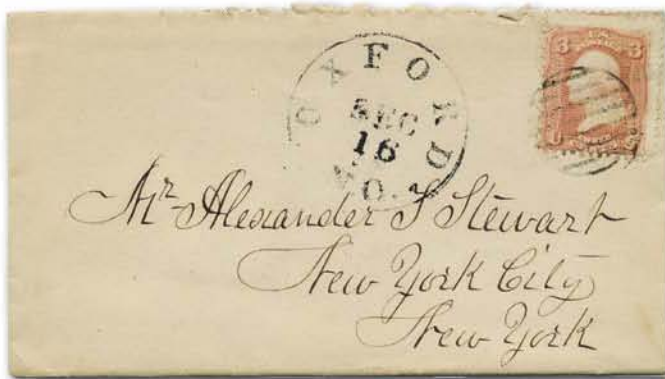 OXFORD
DEC
16
MO.
3 3
Mr Alexander S Stewart
New York City
New York